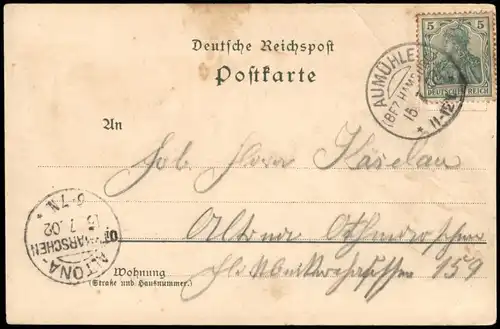 Deutsche Reichspost
Postkarte
5 5
DEUTSCHES REICH
AUMÜHLE
(BEZ. HAMBURG)
15. 7
* 11-12
An
Käselau
Altona Othmarschen
159
ALTONA-
OTHMARSCHEN
15 7 02
6-7N. *
Wohnung
(Straße und Hausnummer.)